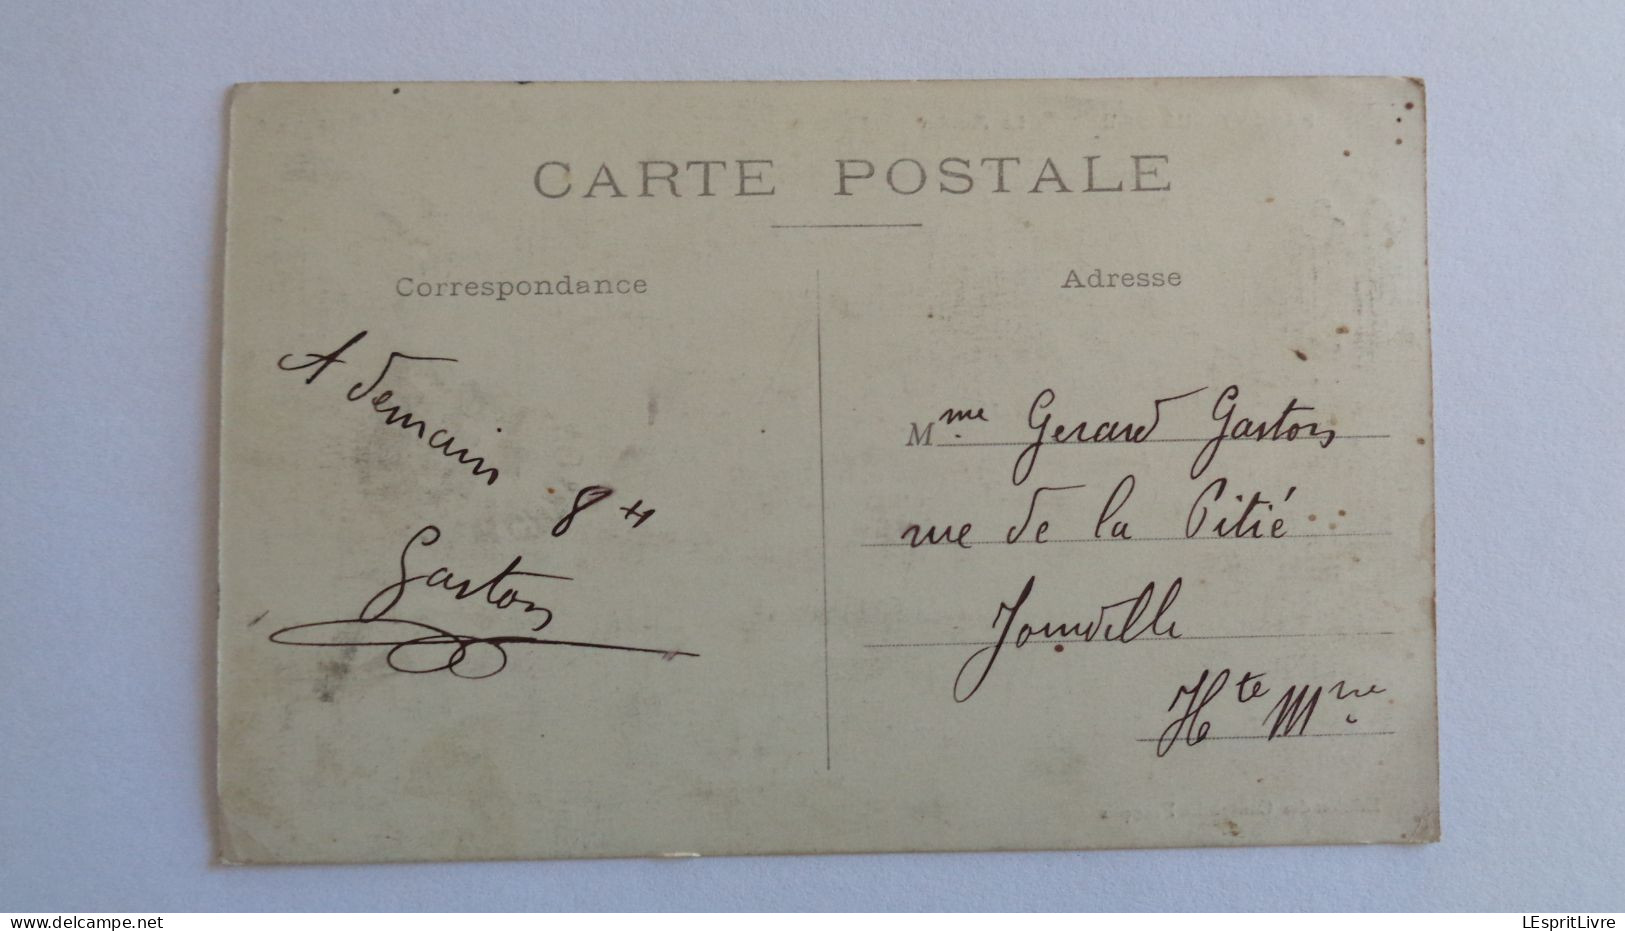 CARTE POSTALE
Correspondance
A demain
8 H
Gaston
Adresse
Mme Gerard Gaston
rue de la Pitié
Joinville
Hte Mne
www.delcampe.net
LEspritLivre